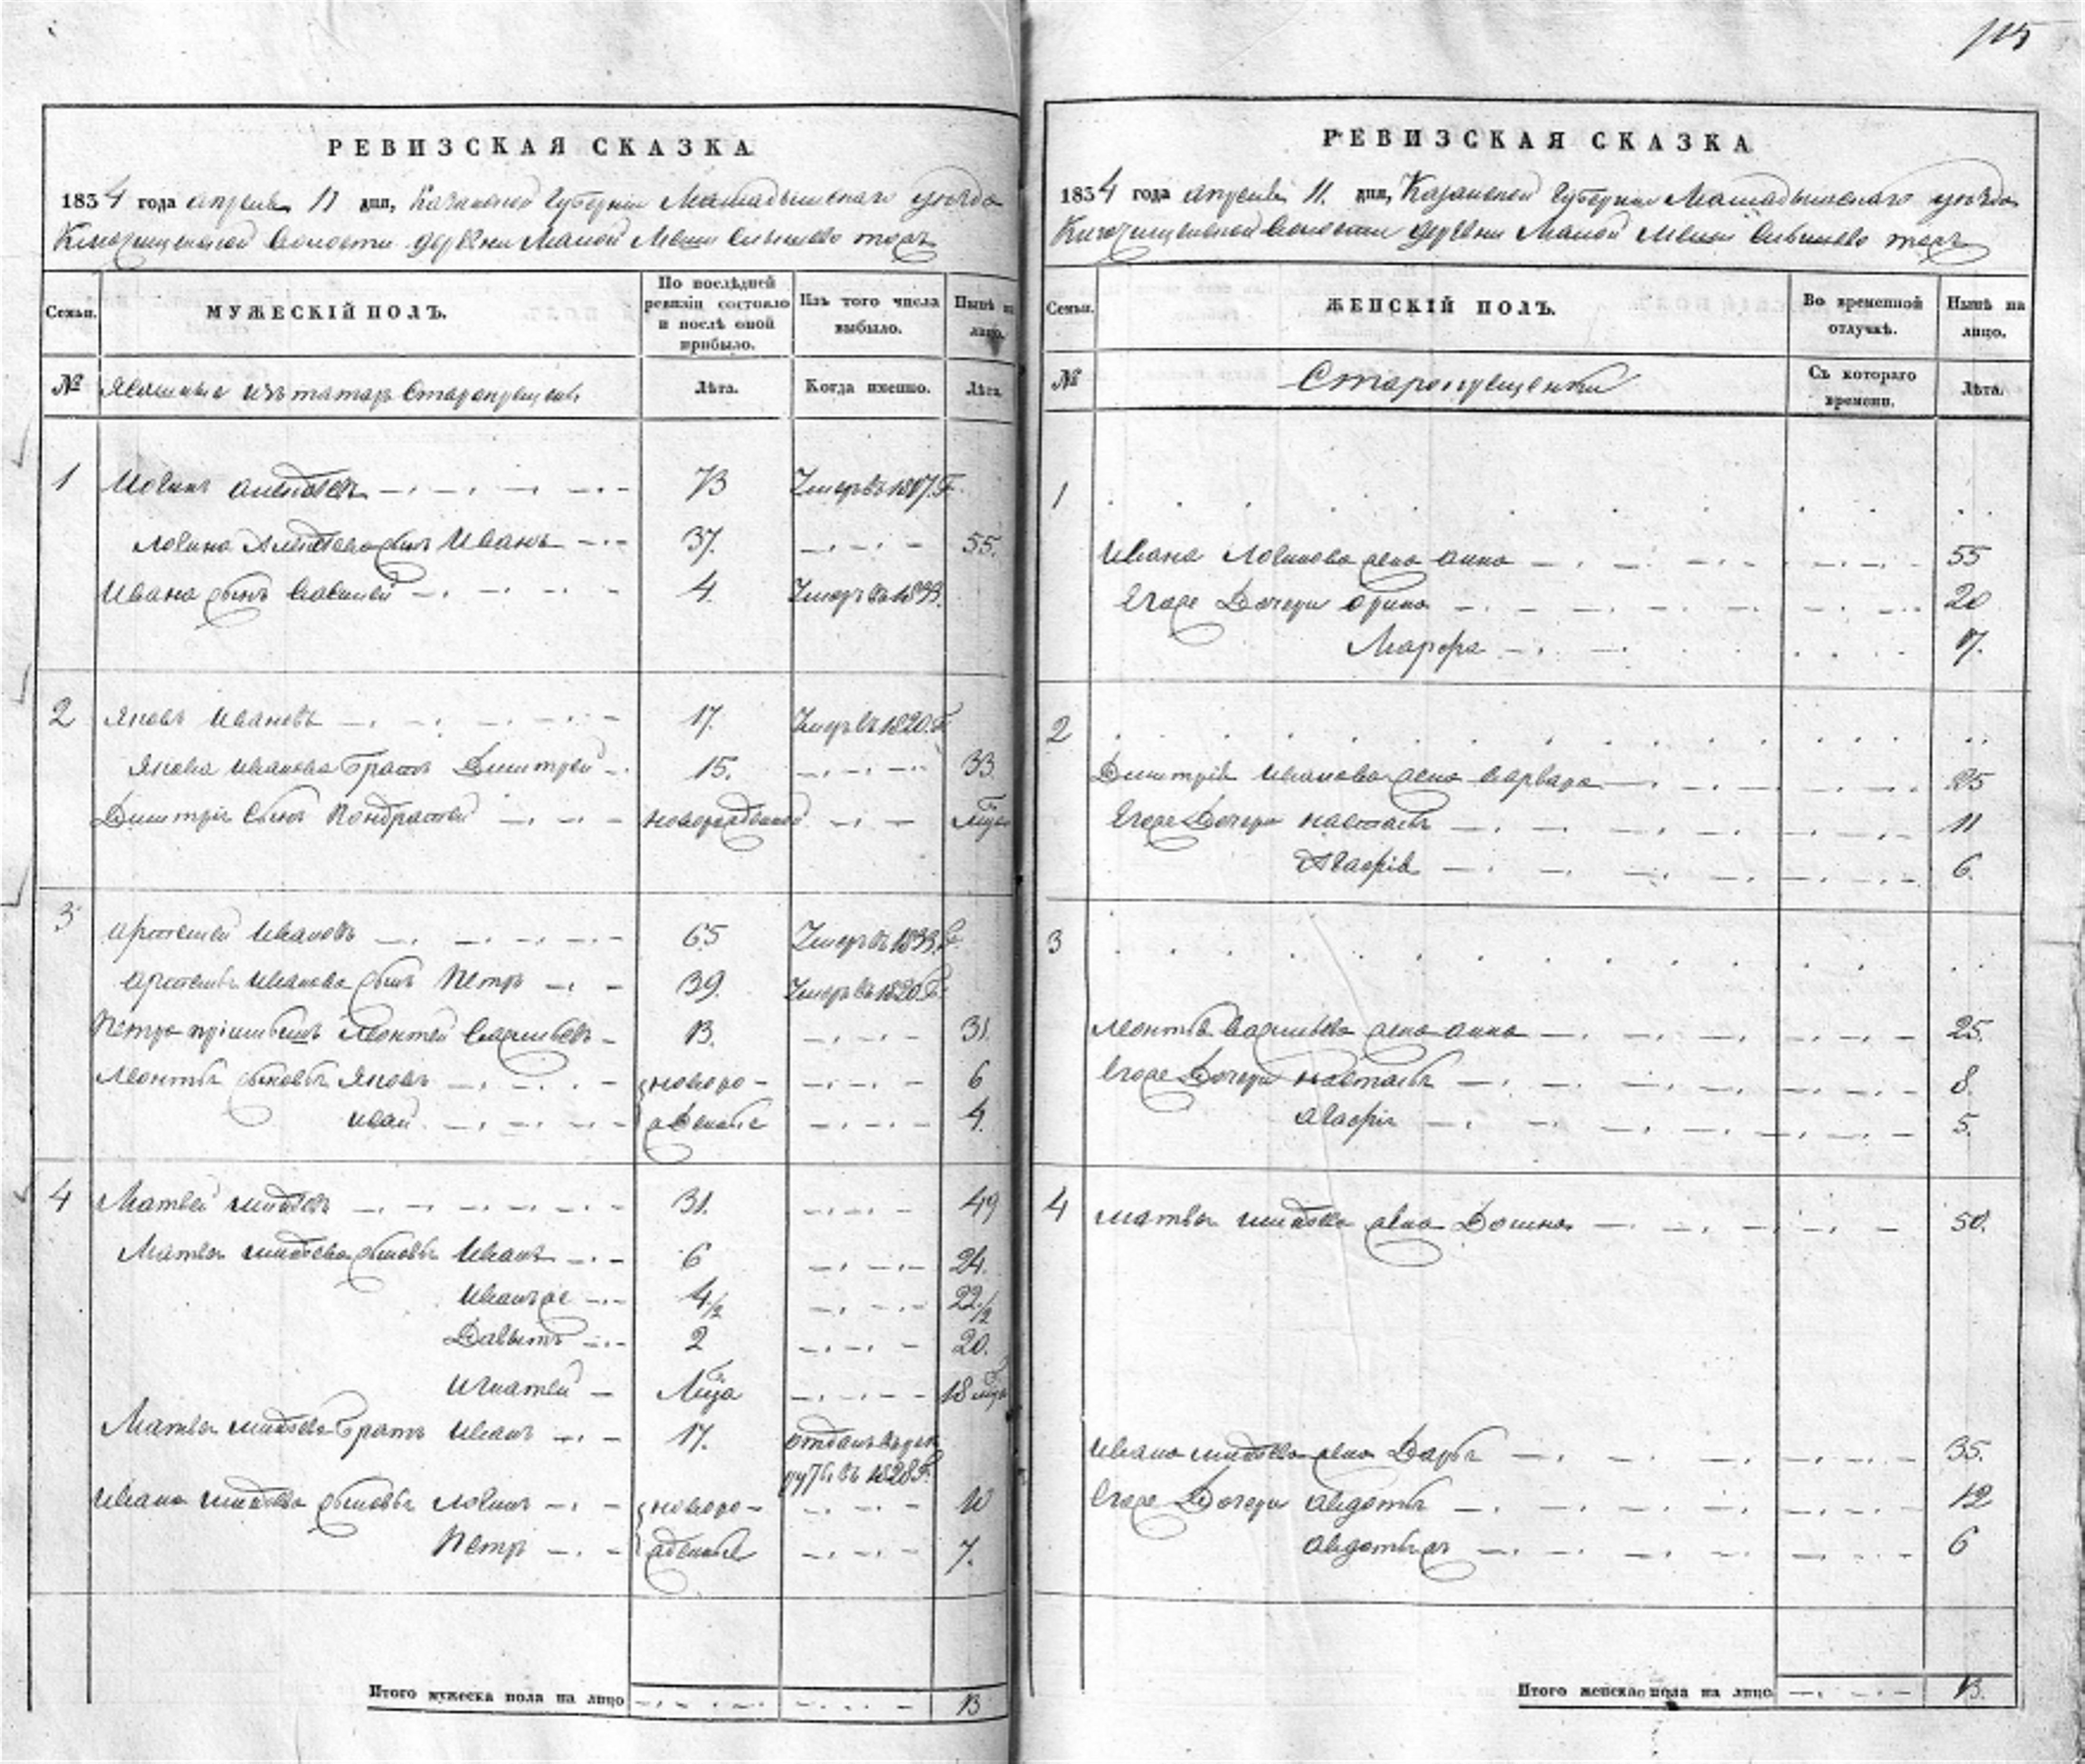 115
РЕВИЗСКАЯ СКАЗКА
1834 года апреля 11 дня, Казанской Губернии Мамадышскаго уезда
волости деревни Малой Меши тожъ
Семьи.
МУЖЕСКІЙ ПОЛЪ.
По послѣдней ревизіи состояло и послѣ оной прибыло.
Изъ того числа выбыло.
Нынѣ на лицо.
№
Ясашные изъ татаръ Старокрещены
Лѣта.
Когда именно.
Лѣта.
1 Логинъ 73 Умеръ въ 1817. Г.
Логина сынъ Иванъ 37. 55.
Ивана сынъ Василей 4. Умеръ въ 1833.
2 Яковъ Ивановъ 17. Умеръ въ 1820. Г.
Якова Иванова братъ Дмитрей 15. 33.
Дмитрія сынъ Кондратей новорожденной
3 Артемей Ивановъ 65 Умеръ въ 1833. Г.
Артемья Иванова сынъ Петръ 39. Умеръ въ 1820 Г.
Петра пріимышъ Леонтей Васильевъ 13. 31.
Леонтья сыновья Яковъ новоро- 6
Иван жденные 4.
4 Матвей 31. 49
Матвея сыновья Иванъ 6 24.
Иванъ же 4 1/2 22 1/2
Давытъ 2 20.
Игнатей 18
Матвея братъ Иванъ 17. отданъ въ рек
руты въ 1828 Г.
Ивана сыновья Логинъ новоро- 10
Петръ жденные 7.
Итого мужеска пола на лицо 13
РЕВИЗСКАЯ СКАЗКА
1834 года апреля 11. дня, Казанской Губернии Мамадышскаго уезда
волости деревни Малой Меши тожъ
Семьи.
ЖЕНСКІЙ ПОЛЪ.
Во временной отлучкѣ.
Нынѣ на лицо.
№
Старокрещенки
Съ котораго времени.
Лѣта.
1
Ивана Логинова жена Анна 55
Егоже Дочери Орина 20
Марфа 17.
2
Дмитрія Иванова жена Варвара 25
Егоже Дочери Настасья 11
Агафія 6.
3
Леонтья Васильева жена Анна 25.
Егоже Дочери Настасья 8.
Агафія 5.
4 Матвея жена Домна 50.
Ивана жена Дарья 35.
Егоже Дочери Авдотья 12
Авдотья ж 6
Итого женска пола на лицо 13.